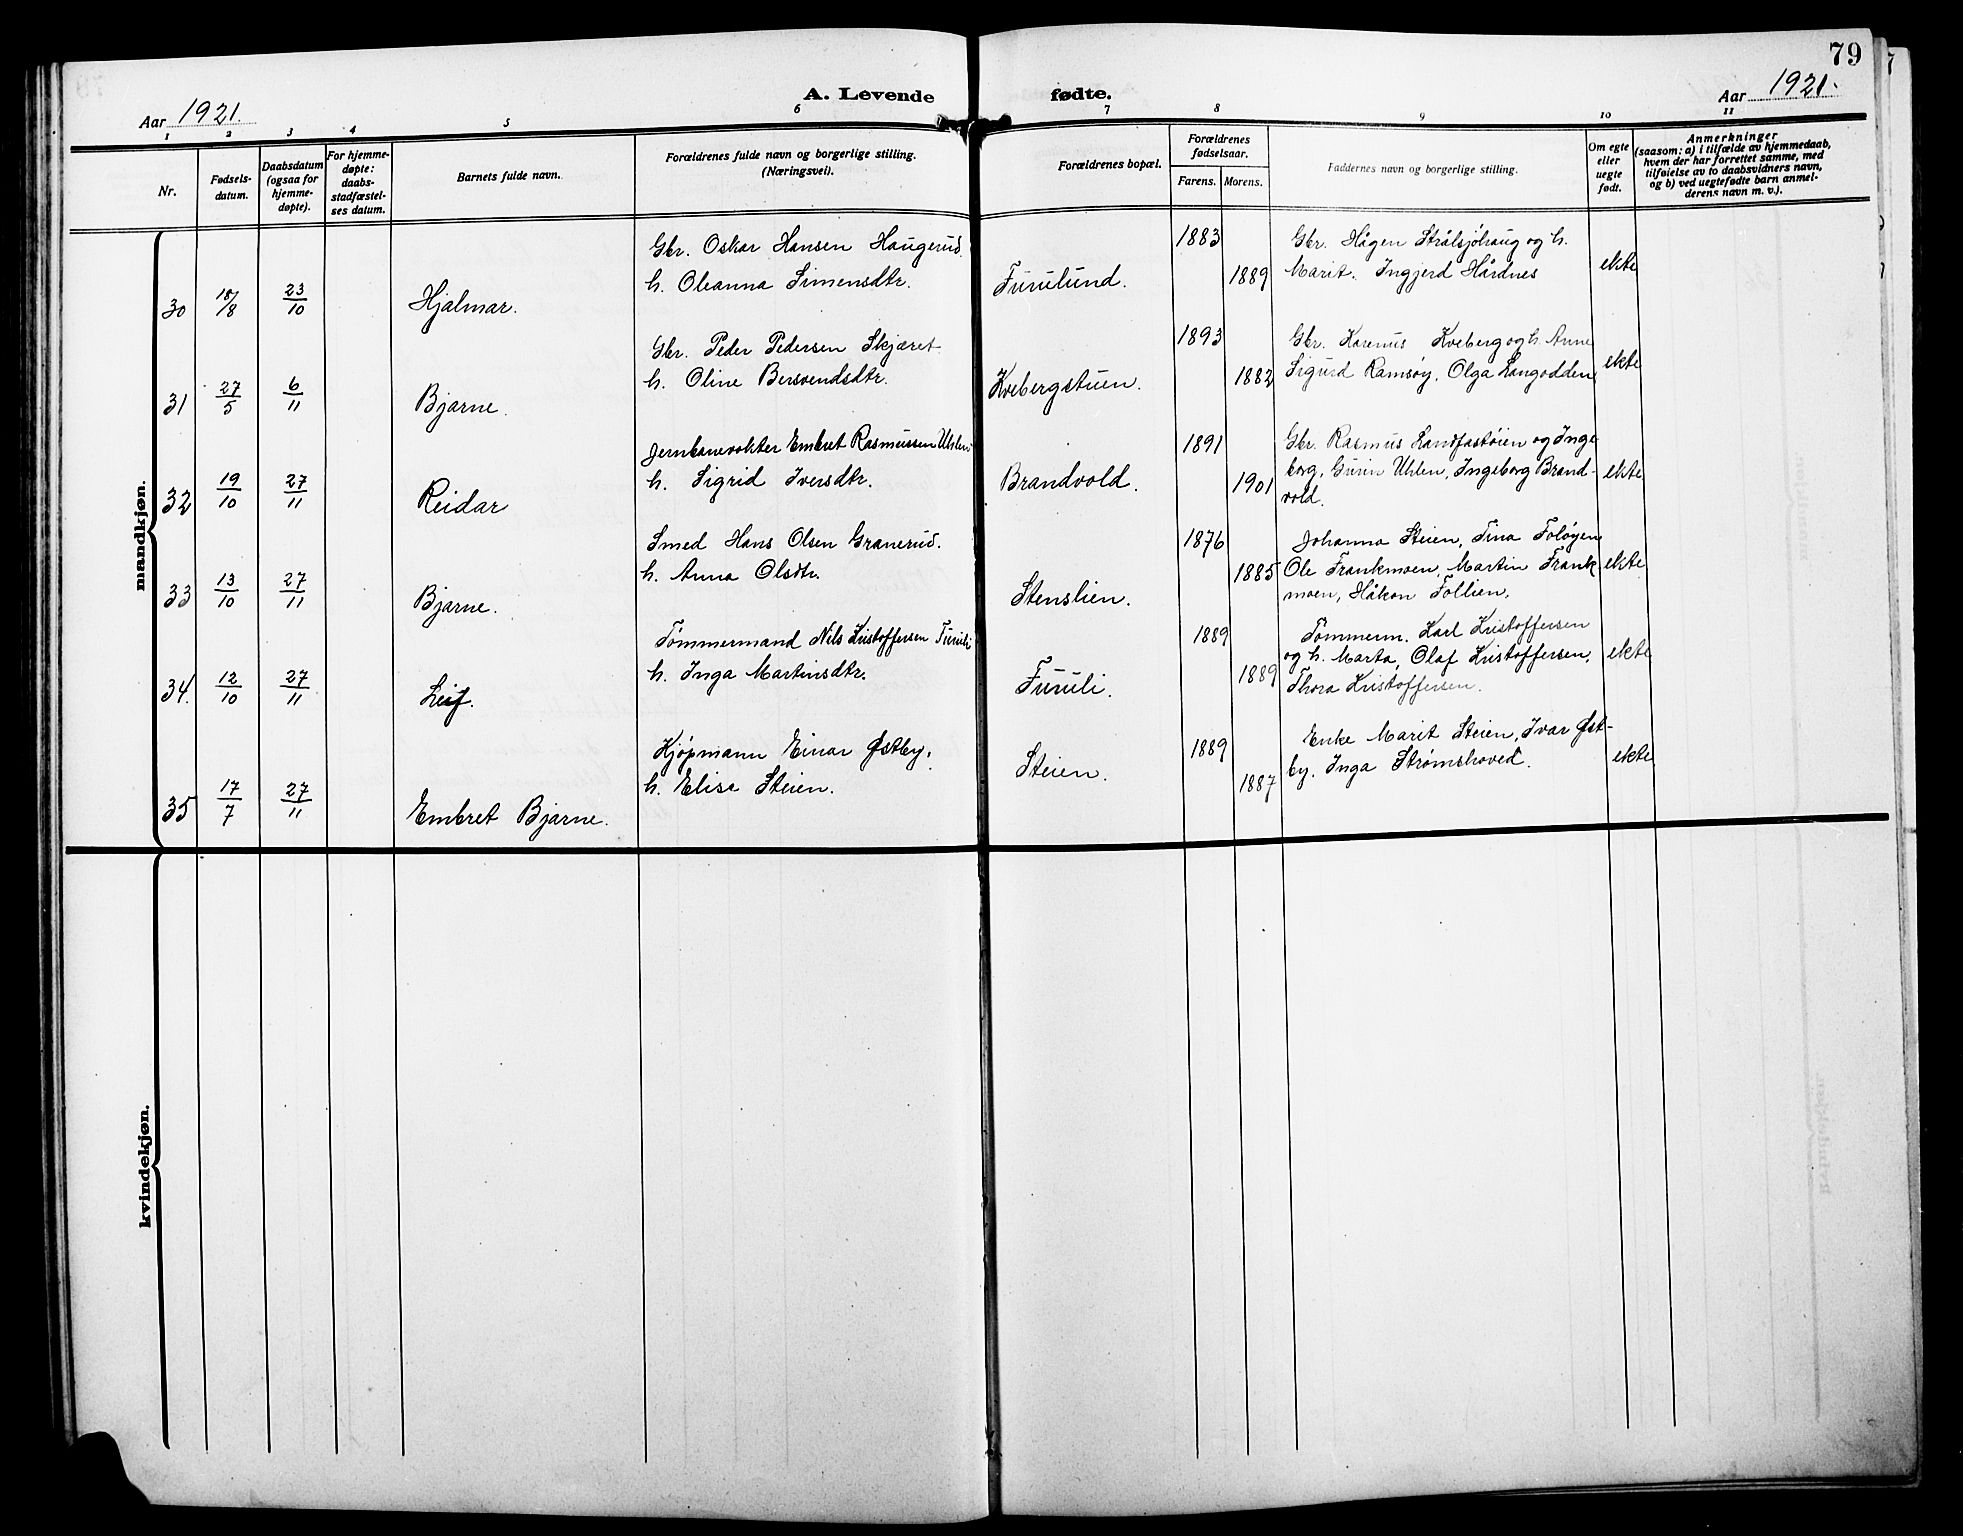 79
Aar 1921.
A. Levende fødte.
Aar 1921.
1 2 3 4 5 6 7 8 9 10 11
Nr.
Fødsels-
datum.
Daabsdatum
(ogsaa for
hjemme-
døpte).
For hjemme-
døpte:
daabs-
stadfæstel-
ses datum.
Barnets fulde navn.
Forældrenes fulde navn og borgerlige stilling.
(Næringsvei).
Forældrenes bopæl.
Forældrenes
fødselsaar.
Farens. Morens.
Faddernes navn og borgerlige stilling.
Om egte
eller
uegte
født.
Anmerkninger
(saasom: a) i tilfælde av hjemmedaab,
hvem der har forrettet samme, med
tilføielse av to daabsvidners navn,
og b) ved uegtefødte barn anmel-
derens navn m. v.).
mandkjøn.
30 18/8 23/10 Hjalmar.
Gbr. Oskar Hansen Haugerud.
h. Oleanna Simensdtr.
Furulund.
1883
1889
Gbr. Hågen Strålsjöhaug og h.
Marit. Ingjerd Hårdnes
ekte
31 27/5 6/11 Bjarne.
Gbr. Peder Pedersen Skjæret
h. Oline Bersvendsdtr.
Kvebergstuen.
1893
1882
Gbr. Karenus Kveberg og h. Anne
Sigurd Ramsöy, Olga Langodden
ekte
32 19/10 27/11 Reidar
Jernbanevokter Embret Rasmussen Uhlen
h. Sigrid Iversdtr.
Brandvold.
1891
1901
Gbr. Rasmus Landfastöien og Inge-
borg, Gurin Uhlen, Ingeborg Brand-
vold.
ekte
33 13/10 27/11 Bjarne.
Smed Hans Olsen Granerud.
h. Anna Olsdtr.
Stenslien.
1876
1885
Johanna Steien, Tina Folöyen
Ole Frankmoen, Martin Frank
moen, Håkon Follien.
ekte
34. 12/10 27/11 Leif.
Tömmermand Nils Kristoffersen Furuli
h. Inga Martinsdtr.
Furuli.
1889
1889
Tömmerm. Karl Kristoffersen
og h. Marta, Olaf Kristoffersen,
Thora Kristoffersen.
ekte
35 17/7 27/11 Embret Bjarne.
Kjøpmann Einar Østby.
h. Elise Steien.
Steien.
1889
1887
Enke Marit Steien, Ivar Øst-
by. Inga Strømshoved.
ekte
kvindekjøn.